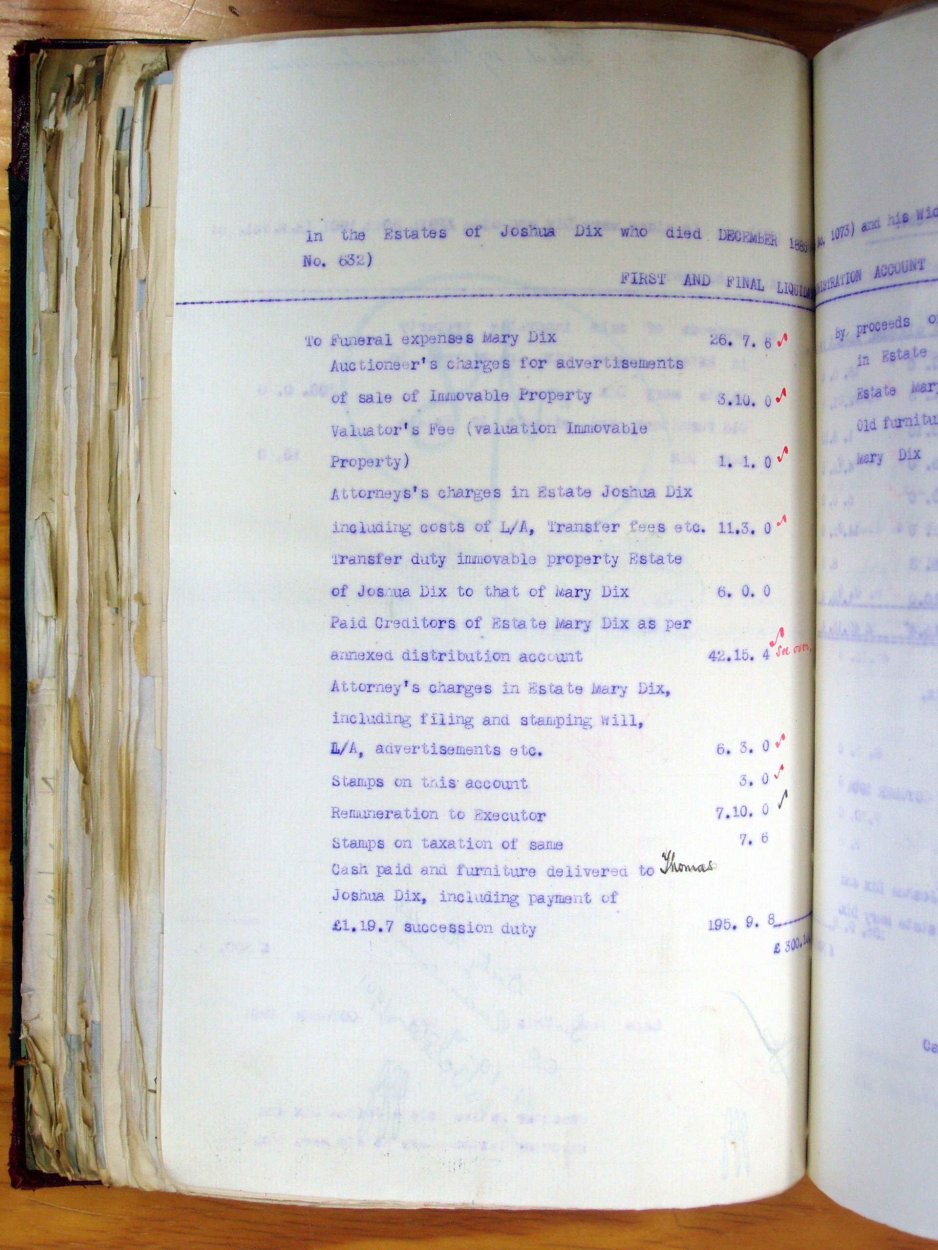 In the Estates of Joshua Dix who died DECEMBER 1889
No. 632)
FIRST AND FINAL LIQUIDA
To Funeral expenses Mary Dix 26. 7. 6
Auctioneer's charges for advertisements
of sale of Immovable Property 3.10. 0
Valuator's Fee (valuation Immovable
Property) 1. 1. 0
Attorneys's charges in Estate Joshua Dix
including costs of L/A, Transfer fees etc. 11.3. 0
Transfer duty immovable property Estate
of Joshua Dix to that of Mary Dix 6. 0. 0
Paid Creditors of Estate Mary Dix as per
annexed distribution account 42.15. 4 See over
Attorney's charges in Estate Mary Dix,
including filing and stamping Will,
L/A, advertisements etc. 6. 3. 0
Stamps on this account 3. 0
Remuneration to Executor 7.10. 0
Stamps on taxation of same 7. 6
Cash paid and furniture delivered to Thomas
Joshua Dix, including payment of
£1.19.7 succession duty 195. 9. 8
£ 300.
1073) and his Wid
ISTRATION ACCOUNT
by proceeds o
in Estate
Estate Mar
Old furnitu
Mary Dix
Ca